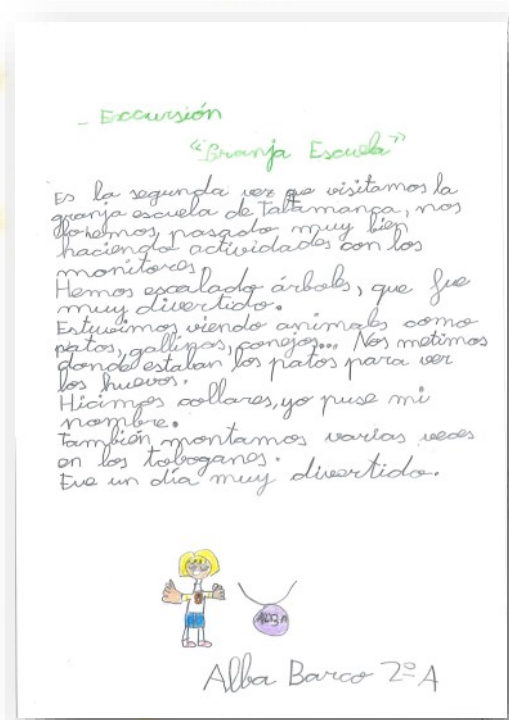 - Excursión
"Granja Escuela"
Es la segunda vez que visitamos la
granja escuela de Talamanca, nos
lo hemos pasado muy bien
haciendo actividades con los
monitores.
Hemos escalado árboles, que fue
muy divertido.
Estuvimos viendo animales como
patos, gallinas, conejos... Nos metimos
donde estaban los patos para ver
los huevos.
Hicimos collares, yo puse mi
nombre.
También montamos varias veces
en los toboganes.
Fue un día muy divertido.
Alba Barco 2º A